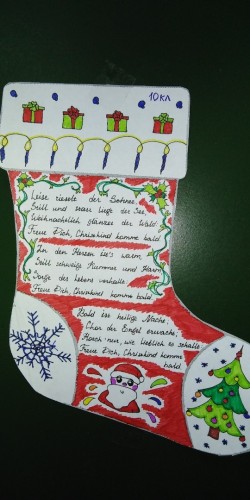 10 кл
Leise rieselt der Schnee,
Still und starr liegt der See,
Weihnachtlich glänzet der Wald
Freue Dich, Christkind kommt bald
In den Herzen ist's warm,
Still schweigt Kummer und Harm
Sorge des Lebens verhallt
Freue Dich, Christkind kommt bald
Bald ist heilige Nacht,
Chor der Engel erwacht;
Horch' nur, wie lieblich es schallt
Freue Dich, Christkind kommt
bald